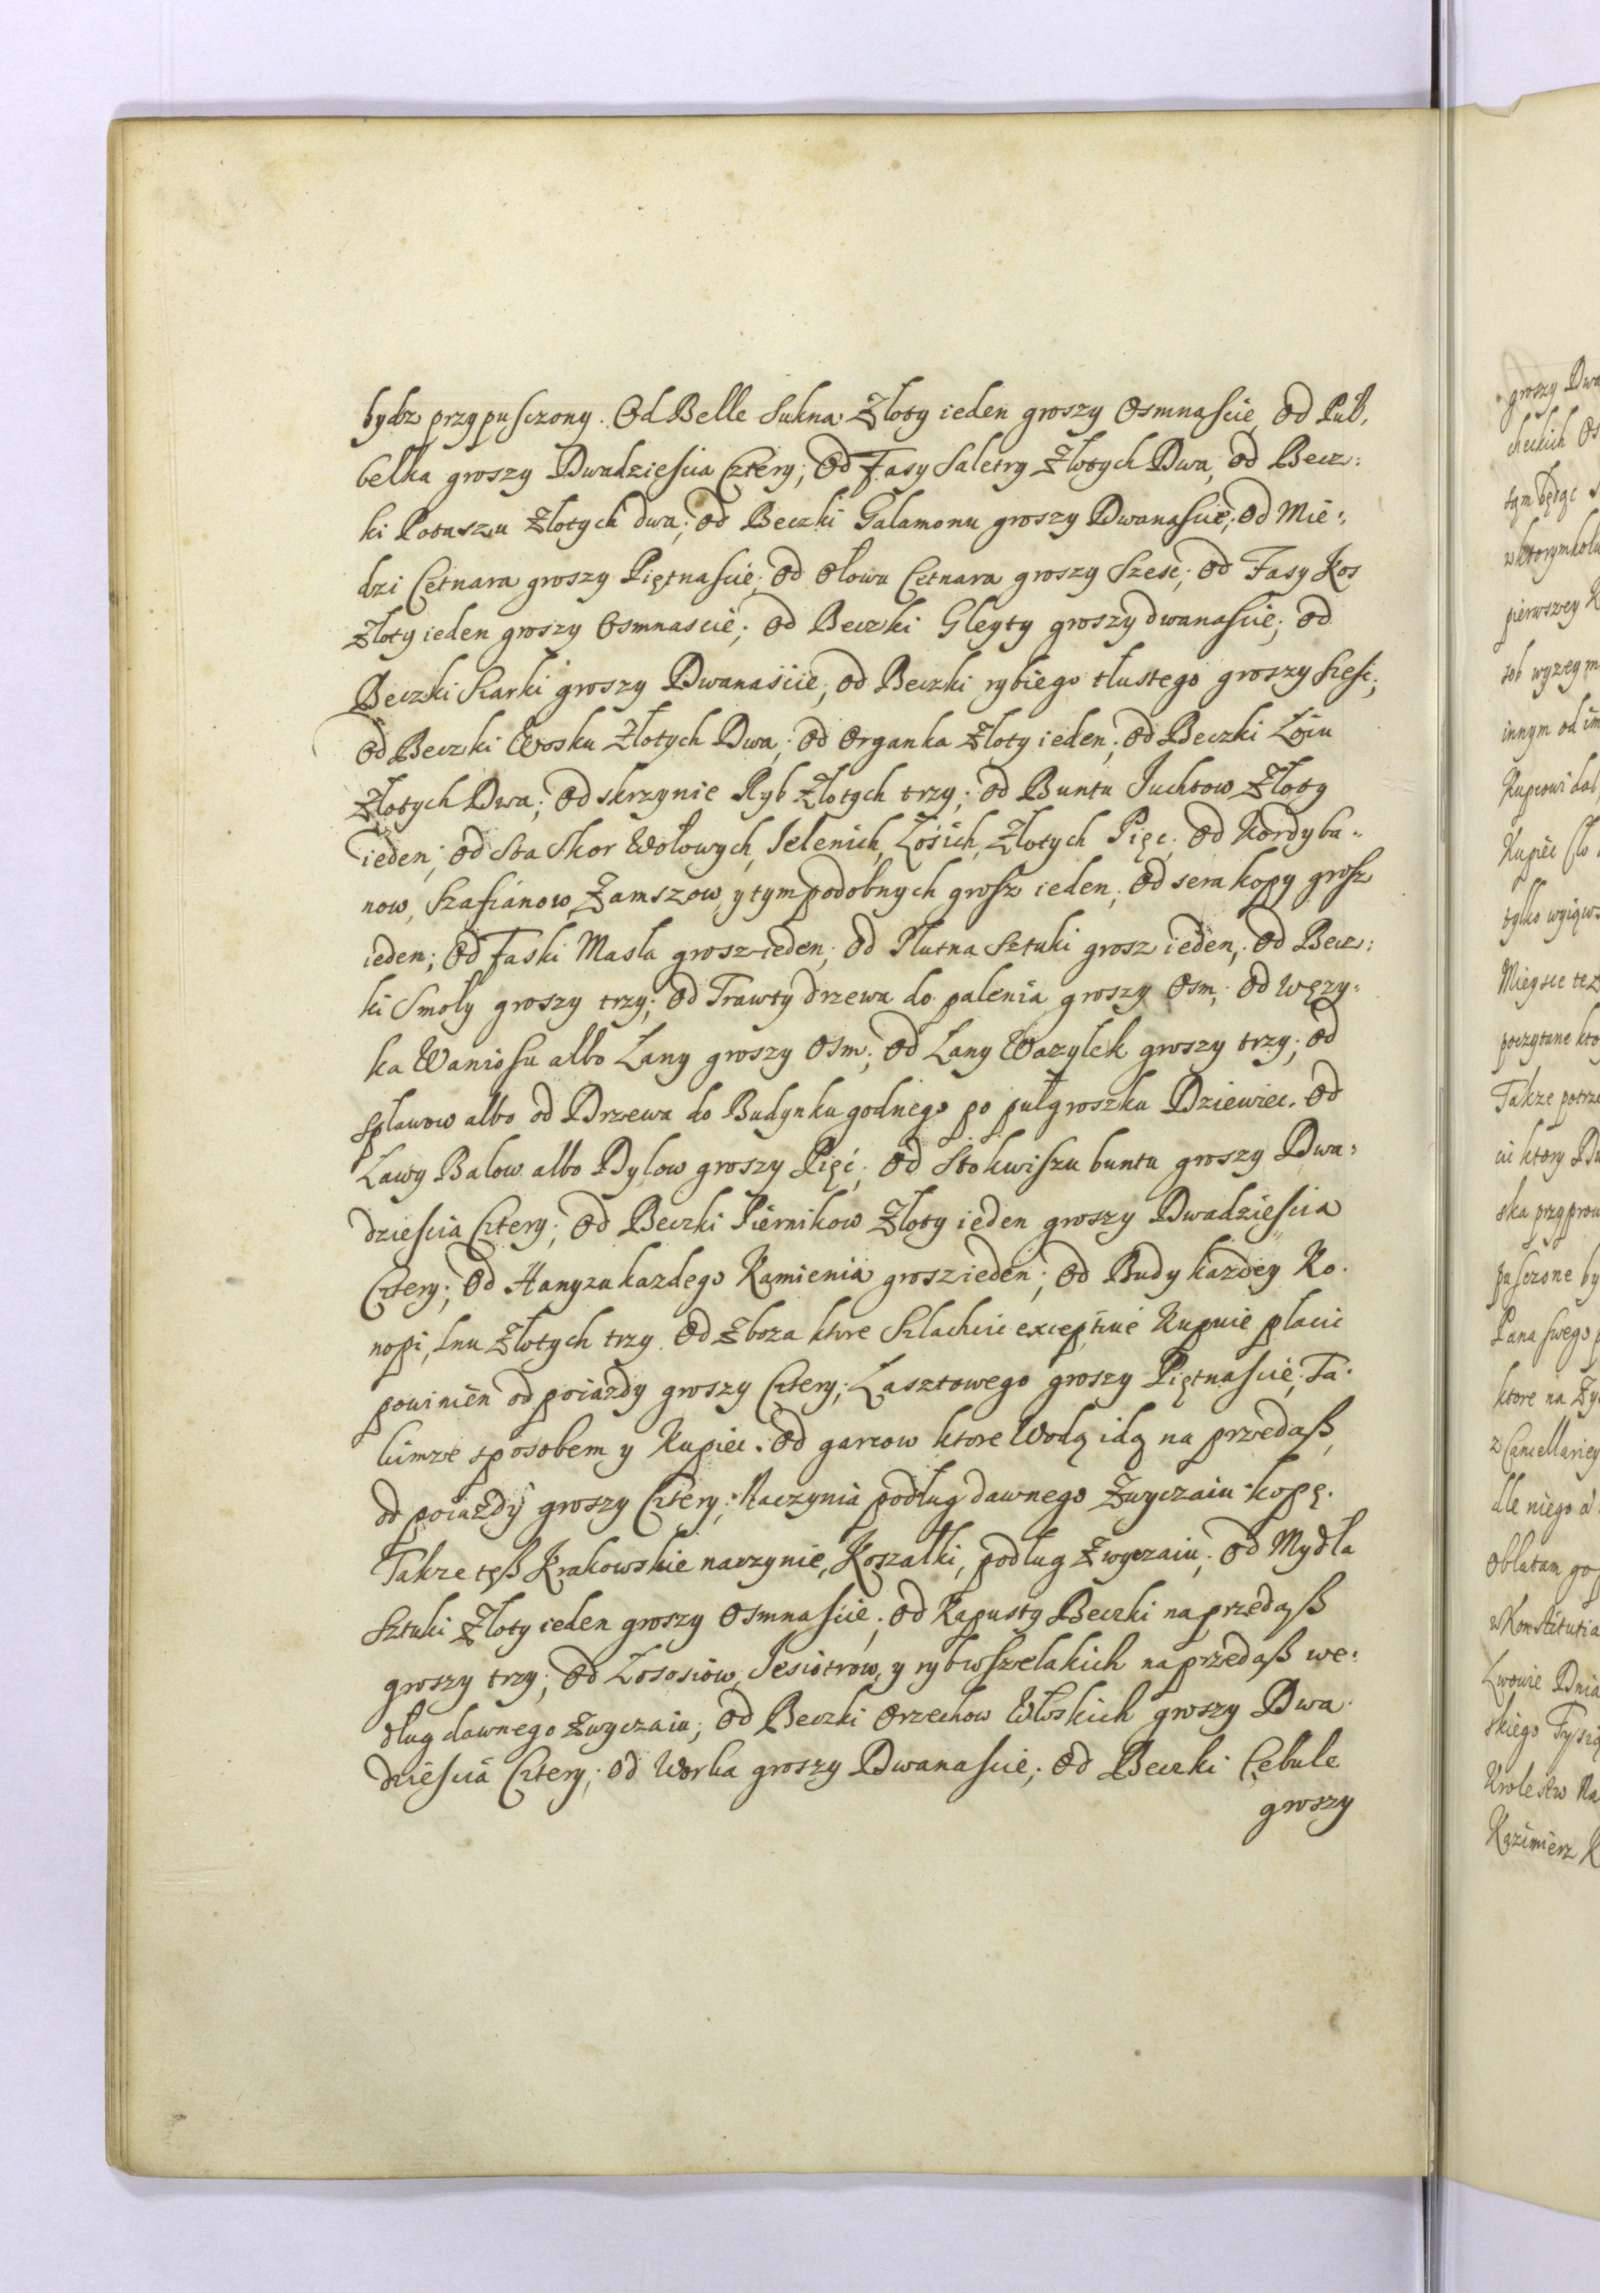 bydz przypusczony. Od Belle Sukna Złoty ieden groszy Osmnascie, Od Puł,
belka groszy Dwadziescia Cztery; Od Fasy Saletry Złotych Dwa; od Becz:
ki Potaszu Złotych dwa; od Beczki Galamonu groszy Dwanascie; Od Mie:,
dzi Cetnara groszy Piętnascie; Od Ołowu Cetnara groszy Szesc; Od Fasy Kos
Złoty ieden groszy Osmnascie; Od Beczki Gleyty groszy dwanascie; od
Beczki Siarki groszy Dwanascie; od Beczki rybiego tłustego groszy szesc;
Od Beczki Wosku Złotych Dwa; Od Organka Złoty ieden; Od Beczki Łoiu
Złotych Dwa; Od skrzynie Ryb Złotych trzy; od Buntu Juchtow Złoty
ieden; od Sta Skor Wołowych, Jelenich, Łosich, Złotych Pięc; Od Kordyba-
now, Szafianow, Zamszow, y tym podobnych grosz ieden; Od sera kopy grosz
ieden; Od Faski Masła grosz ieden; Od Płutna Sztuki grosz ieden; Od Becz:
ki Smoły groszy trzy; Od Trawty drzewa do palenia groszy Osm; Od Węzy-
ka Waniosu albo Lany groszy Osm; Od Lany Wazylek groszy trzy; Od
spławow albo od Drzewa do Budynku godnego po pułgroszku Dziewiec. Od
Ławy Balow albo Dylow groszy Pięć; Od Stokwiszu buntu groszy Dwa-
dziescia Cztery; Od Beczki Piernikow Złoty ieden groszy Dwadziescia
Cztery; Od Hanyzu kazdego Kamienia grosz ieden; Od Budy kazdey Ko-
nopi, lnu Złotych trzy. Od Zboza ktore Szlachcic exceptivè Kupuie płacic
powinien od poiazdy groszy Cztery; Lasztowego groszy Piętnascie; Ta-
kimze sposobem y Kupiec. Od garcow ktore Wodą idą na przedaß
od poiazdy groszy Cztery; Naczynia podług dawnego Zwyczaiu kopę.
Takze teß Krakowskie naczynie, Koszałki, podług Zwyczaiu; Od Mydła
Sztuki Złoty ieden groszy Osmnascie; od Kapusty Beczki na przedaß
groszy trzy; Od Łososiow, Jesiotrow, y ryb wszelakich na przedaß we-
dług dawnego Zwyczaiu; Od Beczki Orzechow Włoskich groszy Dwa-
dziescia Cztery; od Worka groszy Dwanascie; Od Beczki Cebule
groszy